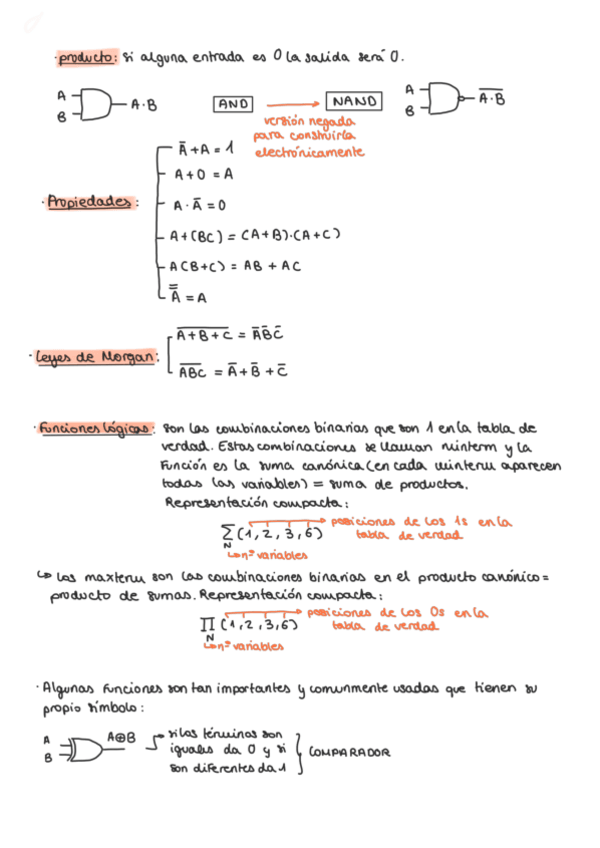 · producto: si alguna entrada es 0 la salida será 0.
A
B
A·B
AND
NAND
A
B
A̅·̅B̅
versión negada
para construirla
electrónicamente
· Propiedades:
A̅ + A = 1
A + 0 = A
A · A̅ = 0
A + (BC) = (A+B)·(A+C)
A(B+C) = AB + AC
A̿ = A
· Leyes de Morgan:
A̅+̅B̅+̅C̅ = A̅B̅C̅
A̅B̅C̅ = A̅ + B̅ + C̅
· Funciones lógicas: son las combinaciones binarias que son 1 en la tabla de
verdad. Estas combinaciones se llaman minterm y la
función es la suma canónica (en cada minterm aparecen
todas las variables) = suma de productos.
Representación compacta:
∑ (1,2,3,6)
N
posiciones de los 1s en la
tabla de verdad
↳ nº variables
↳ Los maxterm son las combinaciones binarias en el producto canónico =
producto de sumas. Representación compacta:
∏ (1,2,3,6)
N
posiciones de los 0s en la
tabla de verdad
↳ nº variables
· Algunas funciones son tan importantes y comunmente usadas que tienen su
propio símbolo:
A
B
A⊕B
si los términos son
iguales da 0 y si
son diferentes da 1
COMPARADOR